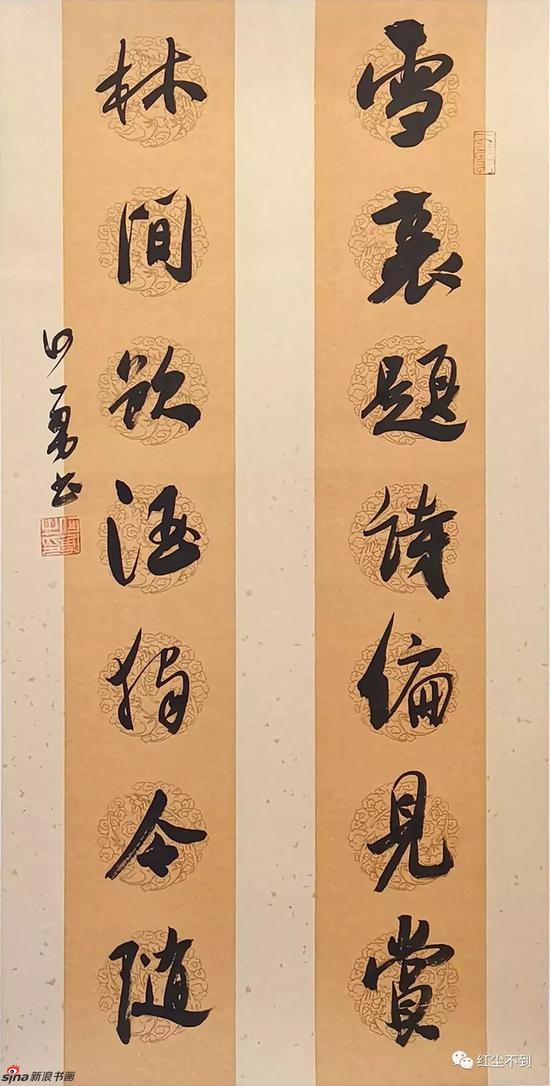 雪裏題詩偏見賞
林間飲酒獨令隨
何勇書
sina新浪书画
红尘不到